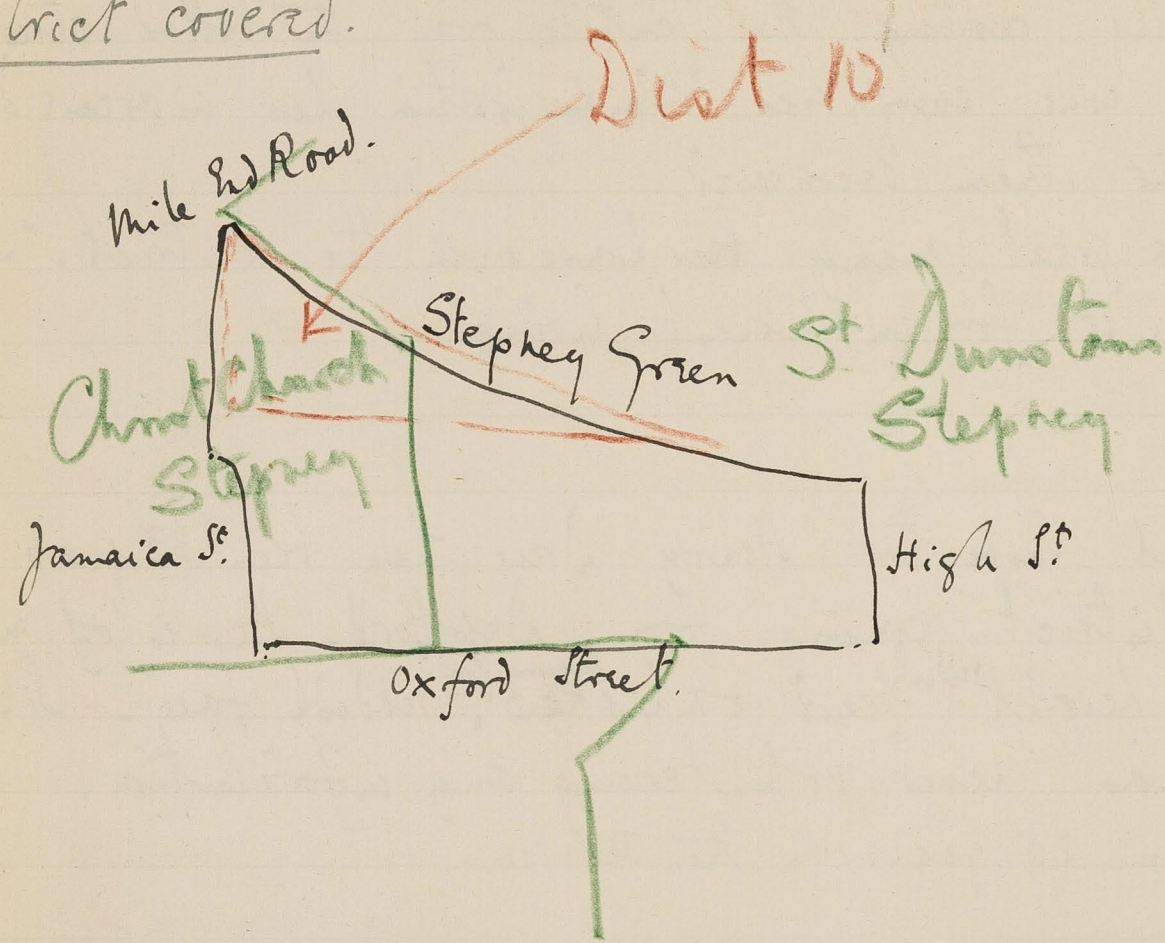 trict covered.
Dist 10
Mile End Road.
Stepney Green
St Dunstans
Stepney
Christ Church
Stepney
Jamaica St.
High St.
Oxford Street.